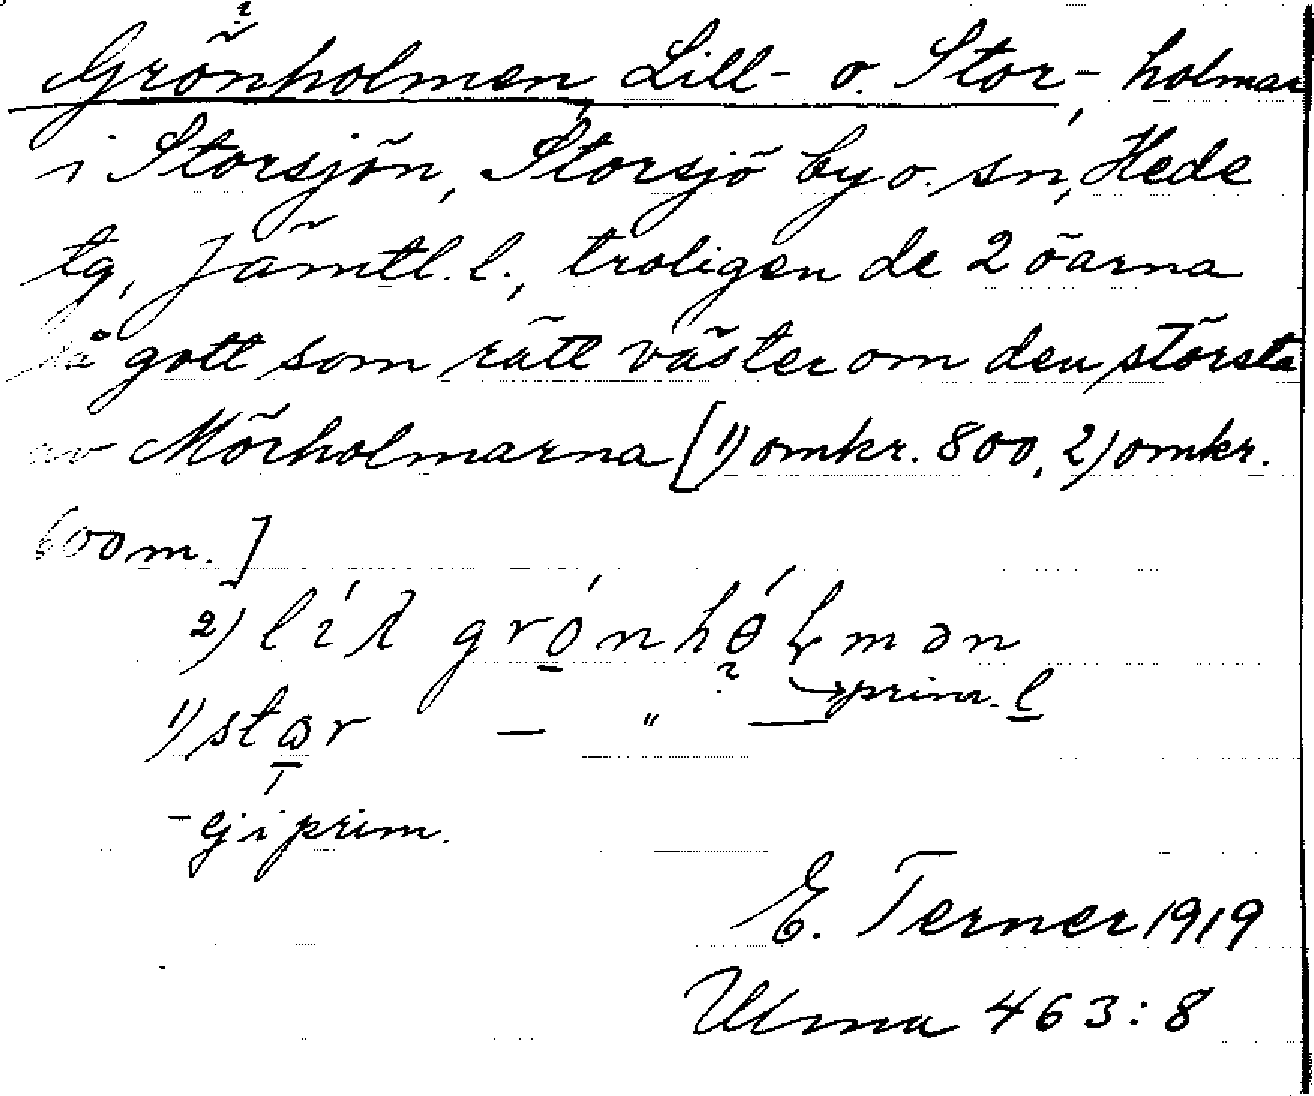 Grönholmen, Lill- o. Stor-, holmar
i Storsjön, Storsjö by o. sn, Hede
tg, Jämtl. l., troligen de 2 öarna
så gott som rätt väster om den största
av Mörholmarna [1) omkr. 800, 2) omkr.
600 m.]
2) lil grønhølmən
prim. l
1) star — " —
- ej i prim.
E. Terner 1919
Ulma 463:8